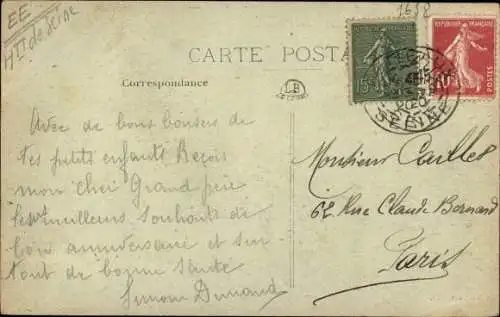 EE
Hts de Seine
1638
CARTE POST
Correspondance
LB
Avec de bons baisers de
tes petits enfants Reçois
mon cher Grand père
les meilleurs souhaits de
bon anniversaire et sur
tout de bonne Santé
Simone Durand
RÉPUBLIQUE FRANÇAISE
15c
10
POSTES
SEINE
Monsieur Caillet
62, Rue Claude Bernard
Paris